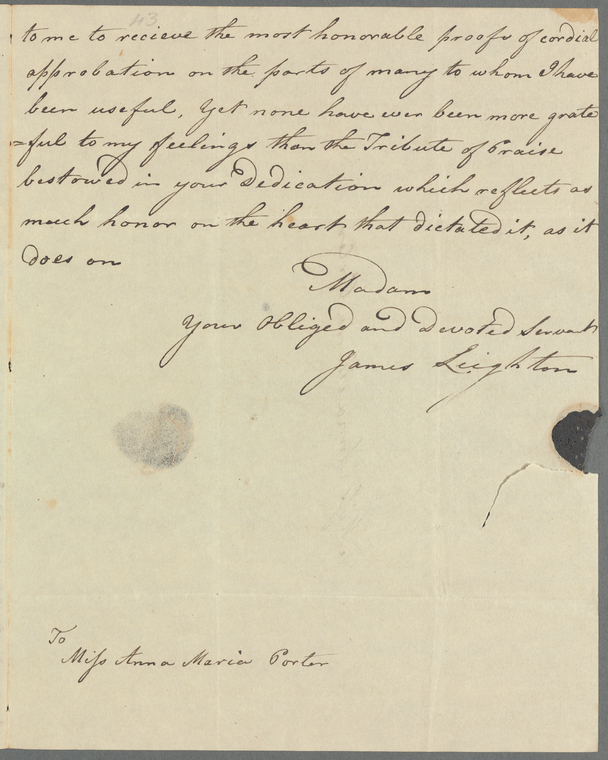 43
to me to recieve the most honorable proofs of cordial
approbation on the parts of many to whom I have
been useful, Yet none have ever been more grate
=ful to my feelings than the Tribute of Praise
bestowed in your Dedication which reflects as
much honor on the heart that dictated it, as it
does on
Madam
Your Obliged and Devoted Servant
James Leighton
To
Miss Anna Maria Porter